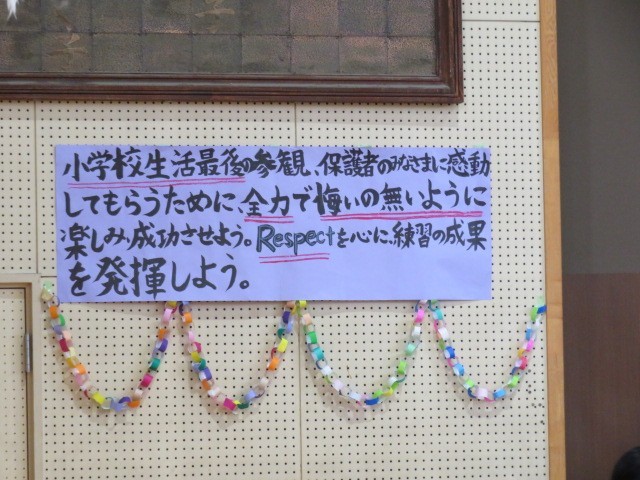 小学校生活最後の参観、保護者のみなさまに感動
してもらうために、全力で悔いの無いように
楽しみ、成功させよう。Respectを心に、練習の成果
を発揮しよう。